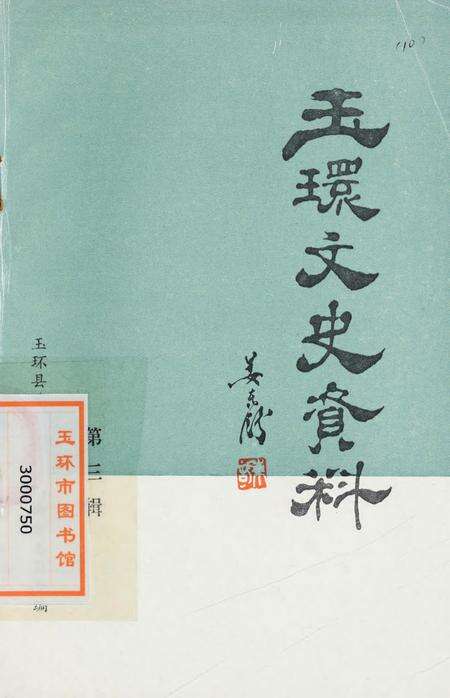 玉環文史資料
姜东舒
玉环县
第三辑
玉环市图书馆
3000750